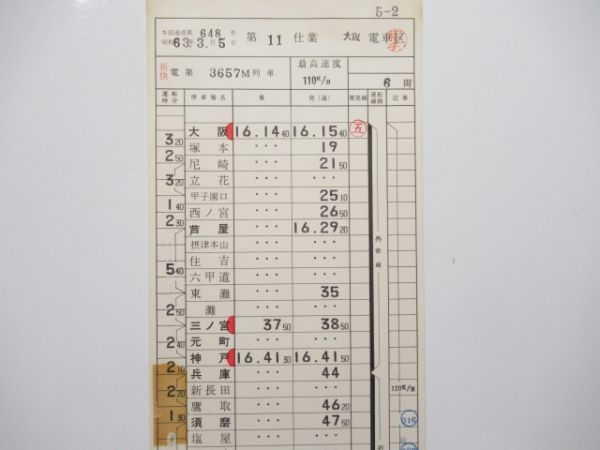 5-2
本鉄達運第 648 号
昭和 63年3.月5日 第 11 仕業 大阪 電車区
新快 電 第 3657M 列車 最高速度 110K/H 6 両
運転時分 停車場名 着 発(通) 着発線 運転線路 記事
大阪 16.14 40 16.15 40 五
3 20
塚本 ・・・ 19
2 50
尼崎 ・・・ 21 50
3 20
立花 ・・・ ・・・
甲子園口 ・・・ 25 10
1 40
西ノ宮 ・・・ 26 50
2 30
芦屋 ・・・ 16.29 20
摂津本山 ・・・ ・・・
住吉 ・・・ ・・・
5 40
六甲道 ・・・ ・・・
東灘 ・・・ 35
灘 ・・・ ・・・
2 50
三ノ宮 37 50 38 50
元町 ・・・ ・・・
2 40
神戸 16.41 30 16.41 50
2 10
兵庫 ・・・ 44
新長田 ・・・ ・・・ 110K/H
2 20
鷹取 ・・・ 46 20
1 30
須磨 ・・・ 47 50
塩屋 ・・・ ・・・